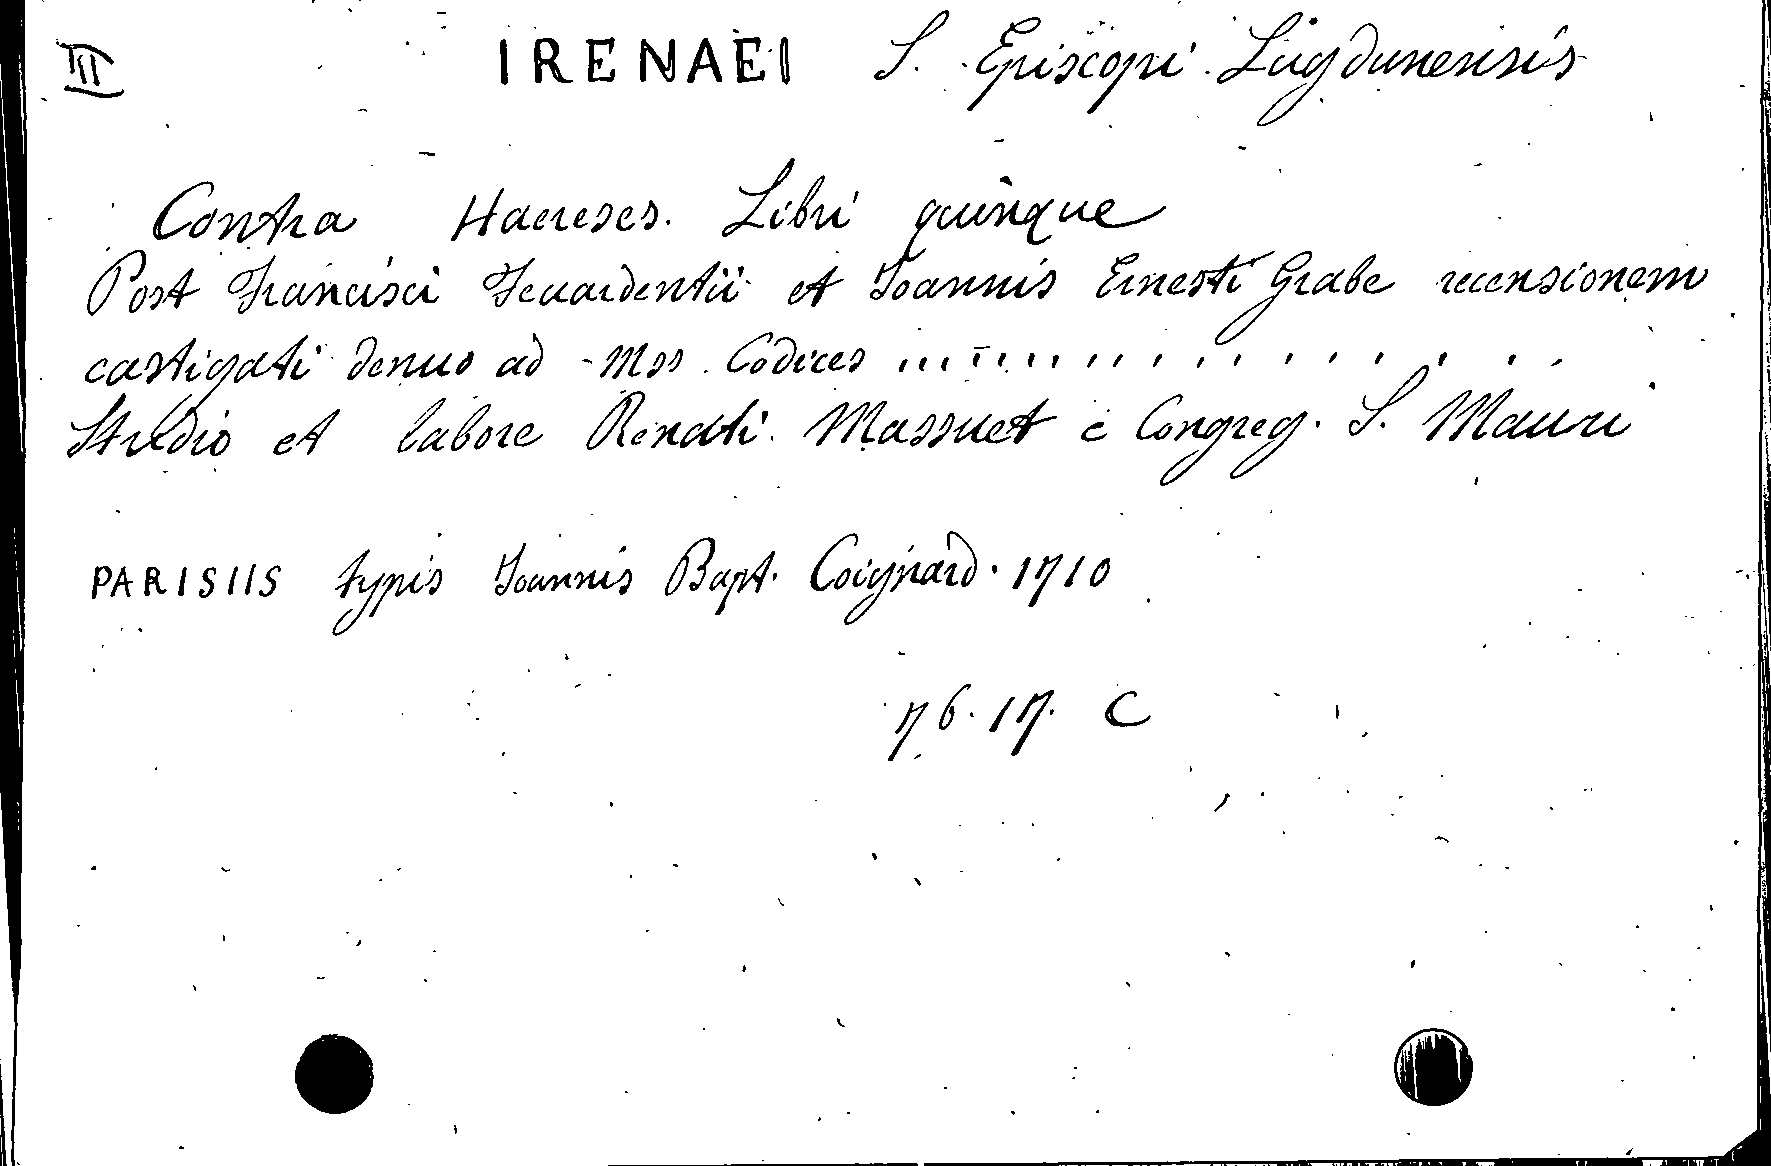 III IRENAEI S. Episcopi Lugdunensis
Contra Haereses. Libri quinque
Post Francisci Feuardentii et Joannis Ernesti Grabe recensionem
castigati denuo ad Mss. Codices ....................
Studio et labore Renati Massuet e Congreg. S. Mauri
PARISIIS typis Joannis Bapt. Coignard. 1710
76.17. C